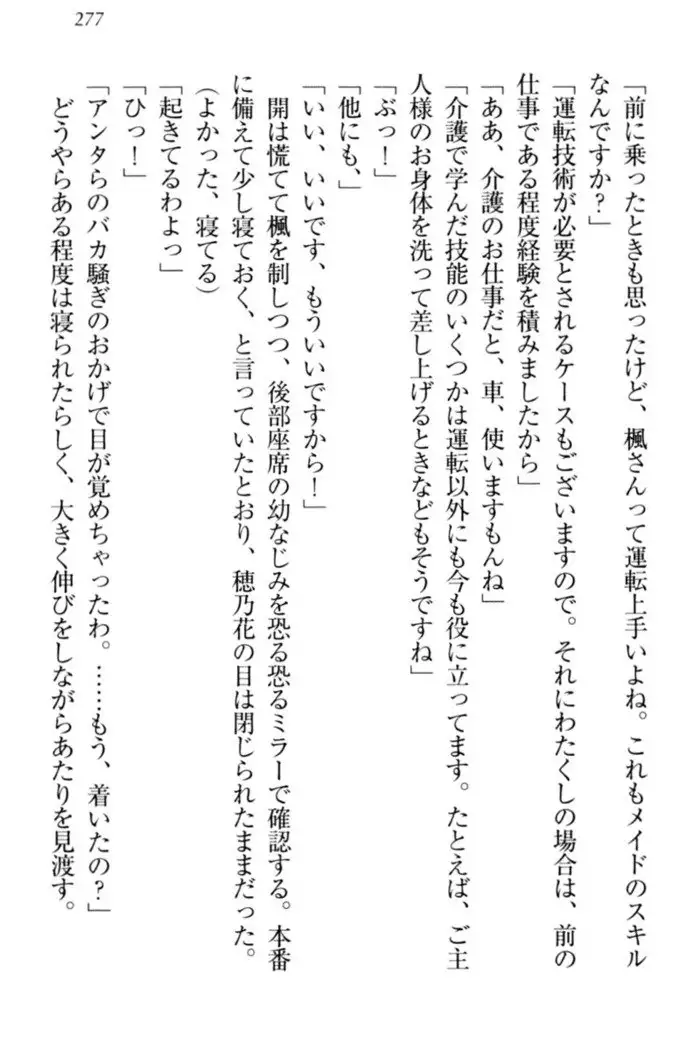 277
「前に乗ったときも思ったけど、楓さんって運転上手いよね。これもメイドのスキル
なんですか?」
「運転技術が必要とされるケースもございますので。それにわたくしの場合は、前の
仕事である程度経験を積みましたから」
「ああ、介護のお仕事だと、車、使いますもんね」
「介護で学んだ技能のいくつかは運転以外にも今も役に立ってます。たとえば、ご主
人様のお身体を洗って差し上げるときなどもそうですね」
「ぶっ!」
「他にも、」
「いい、いいです、もういいですから!」
開は慌てて楓を制しつつ、後部座席の幼なじみを恐る恐るミラーで確認する。本番
に備えて少し寝ておく、と言っていたとおり、穂乃花の目は閉じられたままだった。
(よかった、寝てる)
「起きてるわよっ」
「ひっ!」
「アンタらのバカ騒ぎのおかげで目が覚めちゃったわ。……もう、着いたの?」
どうやらある程度は寝られたらしく、大きく伸びをしながらあたりを見渡す。